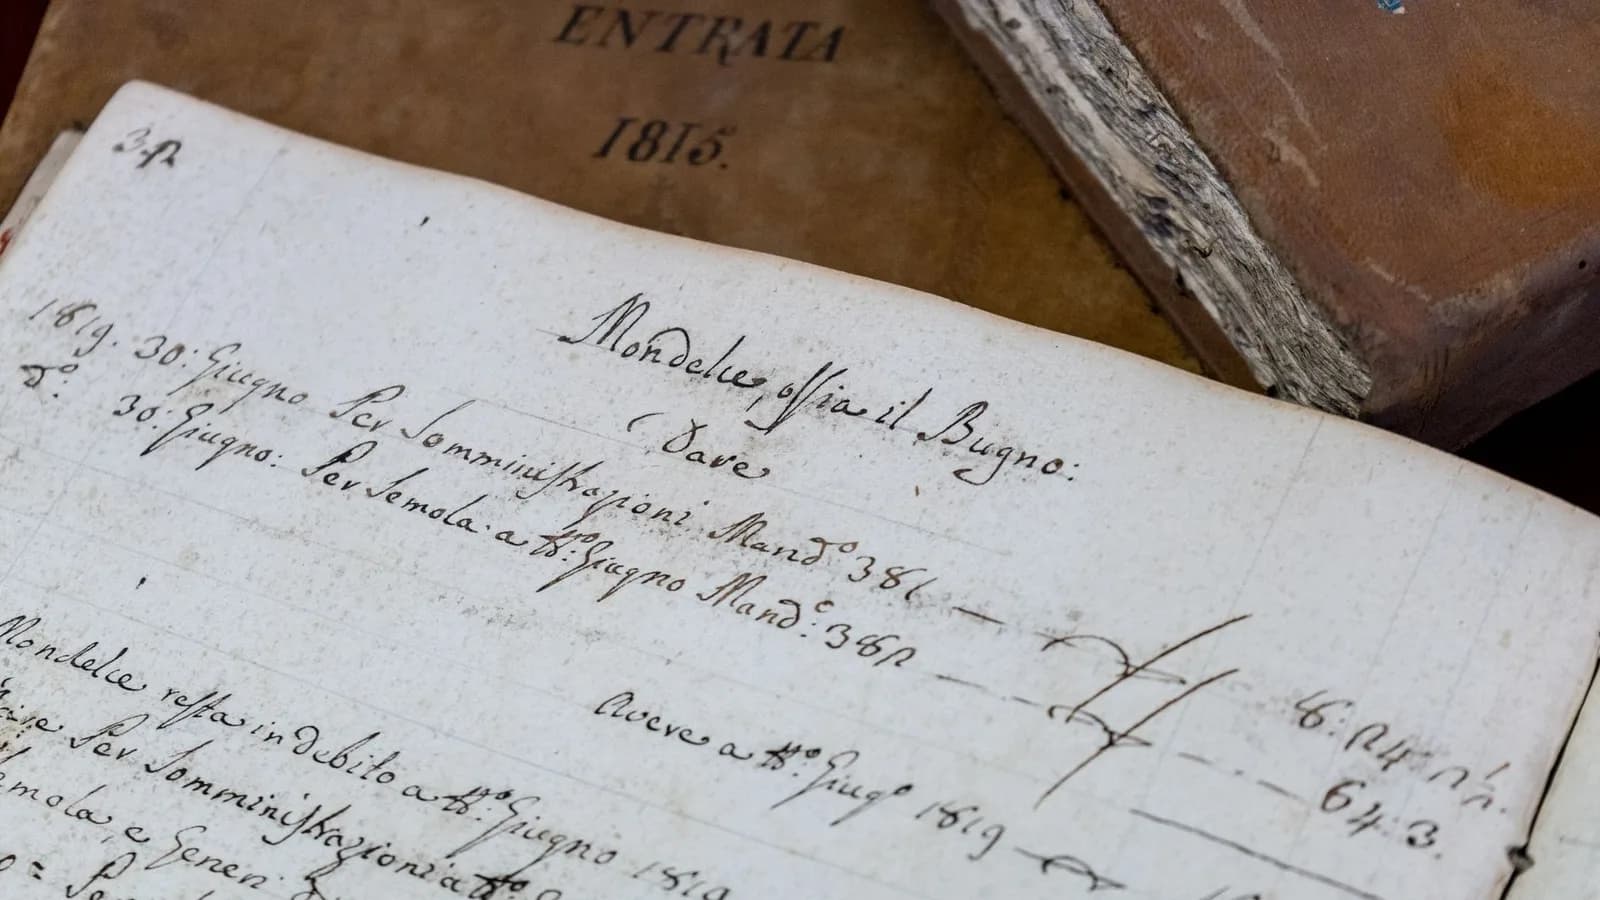 ENTRATA
1815.
32
Mondelce, ossia il Bugno:
Dare
1819. 30: Giugno Per Somministrazioni Mand.º 381
d.º 30: Giugno: Per Semola a tt.º Giugno Mand.º: 382
8: 24
64: 3.
Avere a tt.º: Giug.º 1819
Mondelce resta in debito a tt.º: Giugno 1819
Per Somministrazioni a tt.º
e Generi